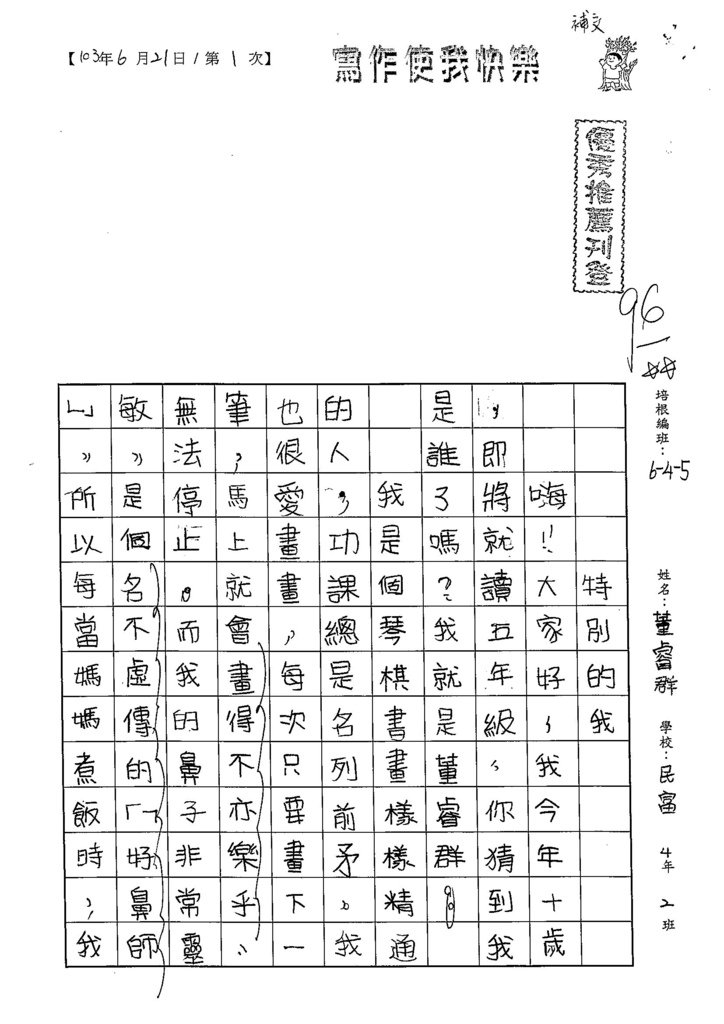 【103年6月21日/第1次】
寫作使我快樂
補文
優秀推薦刊登
96
培根編班：6-4-5
姓名：董睿群 學校：民富 4年2班
特別的我
嗨！！大家好，我今年十歲
，即將就讀五年級，你猜到我
是誰了嗎？我就是董睿群！
我是個琴棋書畫樣樣精通
的人，功課總是名列前矛。我
也很愛畫畫，每次只要畫下一
筆，馬上就會畫得不亦樂乎，
無法停止。而我的鼻子非常靈
敏，是個名不虛傳的「好鼻師
」，所以每當媽媽煮飯時，我